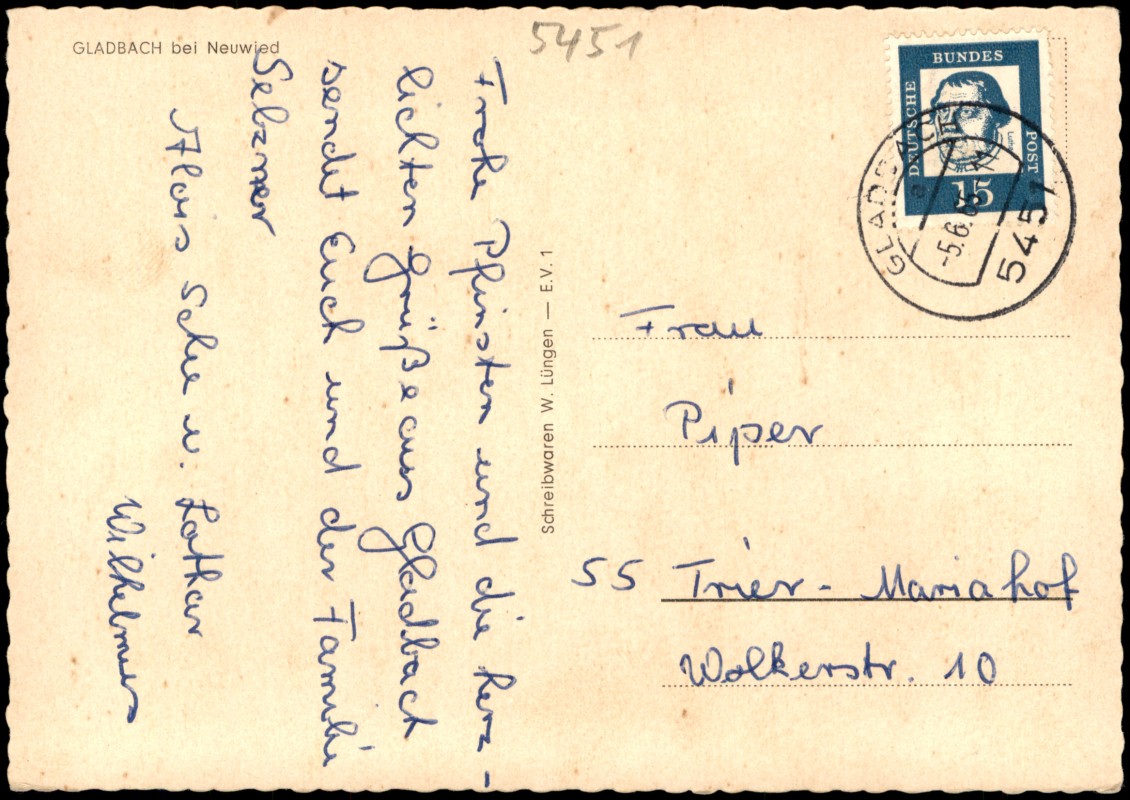 GLADBACH bei Neuwied
5451
Frohe Pfinsten und die herz-
lichten Grüße aus Gladbach
sendet Euch und der Familie
Selzner
Alois Schu u. Lothar
Wilhelmus
Schreibwaren W. Lüngen — E.V. 1
DEUTSCHE BUNDES POST
Luther
15
GLADBACH
a
-5.6.65
5451
Frau
Piper
55 Trier - Mariahof
Wolkerstr. 10